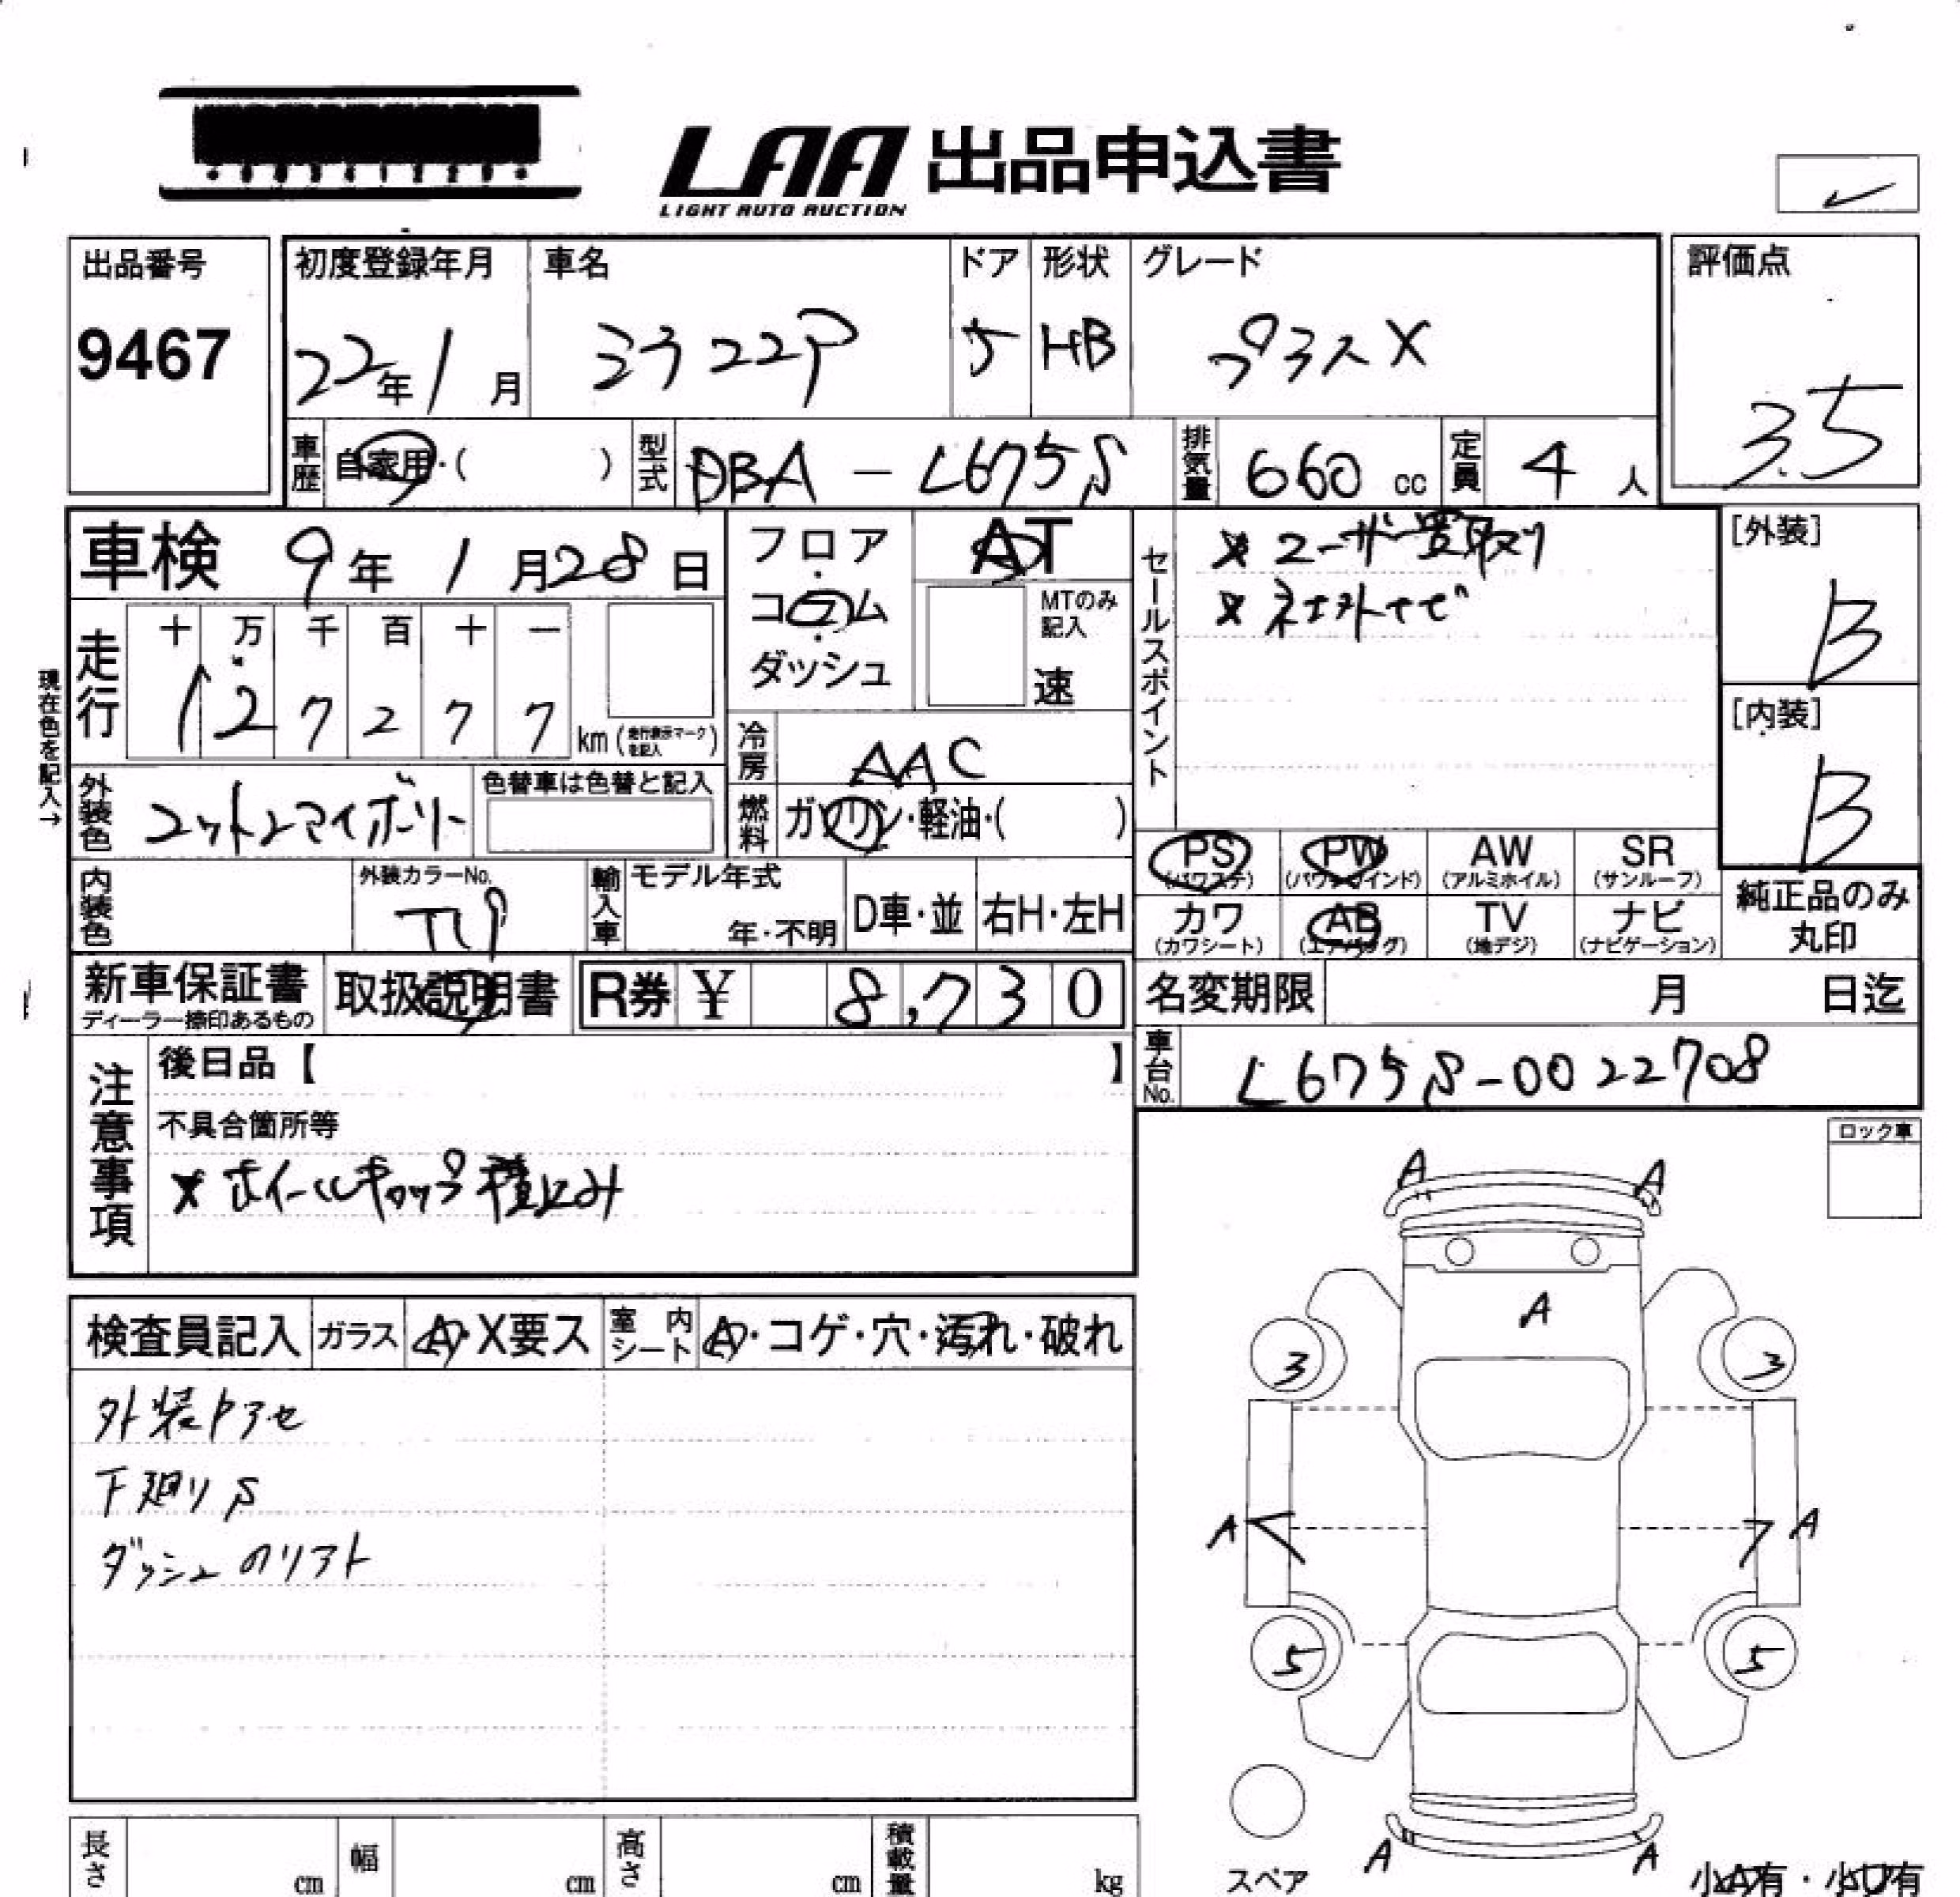 LAA 出品申込書
LIGHT AUTO AUCTION
出品番号
9467
初度登録年月
22年1月
車名
ミラココア
ドア
5
形状
HB
グレード
プラスX
評価点
3.5
車歴 自家用・( )
型式 DBA-L675S
排気量 660 cc
定員 4 人
車検 9年1月28日
フロア・コラム・ダッシュ
AT
MTのみ記入
速
セールスポイント
※ユーザー買取り
※ネオ外ナビ
[外装]
B
[内装]
B
現在色を記入→
走行
十 万 千 百 十 一
1 2 7 2 7 7 km(走行表示マークを記入)
冷房 AAC
外装色 コットンアイボリー
色替車は色替と記入
燃料 ガソリン・軽油・( )
PS (パワステ)
PW (パワーウインド)
AW (アルミホイル)
SR (サンルーフ)
カワ (カワシート)
AB (エアバッグ)
TV (地デジ)
ナビ (ナビゲーション)
純正品のみ丸印
内装色
外装カラーNo.
輸入車
モデル年式
年・不明
D車・並
右H・左H
新車保証書
ディーラー捺印あるもの
取扱説明書
R券 ¥ 8,730
名変期限 月 日迄
車台No. L675S-0022708
注意事項
後日品【 】
不具合箇所等
※ホイールキャップ積込み
ロック車
検査員記入
ガラス A・X要ス
室内シート A・コゲ・穴・汚れ・破れ
外装色アセ
下廻りS
ダッシュのリフト
A A
A
3 3
A A
5 5
A A
スペア
小A有・小U有
長さ cm
幅 cm
高さ cm
積載量 kg